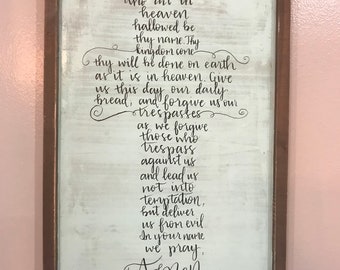 who art in
heaven
hallowed be
thy name. Thy
kingdom come
thy will be done on earth
as it is in heaven. Give
us this day our daily
bread, and forgive us our
trespasses
as we forgive
those who
trespass
against us
and lead us
not into
temptation,
but deliver
us from evil.
In your name
we pray,
Amen